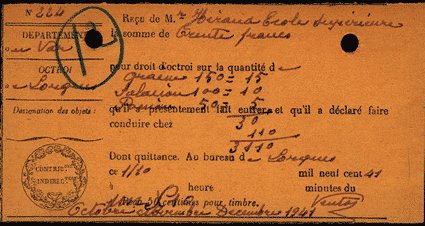 N° 224
Reçu de M. Hiraud Ecole Supérieure
DÉPARTEMENT
du Var
la somme de Trente francs
OCTROI
de Lorgues
pour droit d'octroi sur la quantité de
150 = 15
100 = 10
50 = 5
Désignation des objets :
qu'il a présentement fait entrer, et qu'il a déclaré faire
conduire chez
30
110
3110
Dont quittance. Au bureau de Lorgues
CONTRIB.
INDIRECT.
ce 1/10 mil neuf cent 41
heure minutes du
50 centimes pour timbre.
Octobre Novembre Décembre 1941